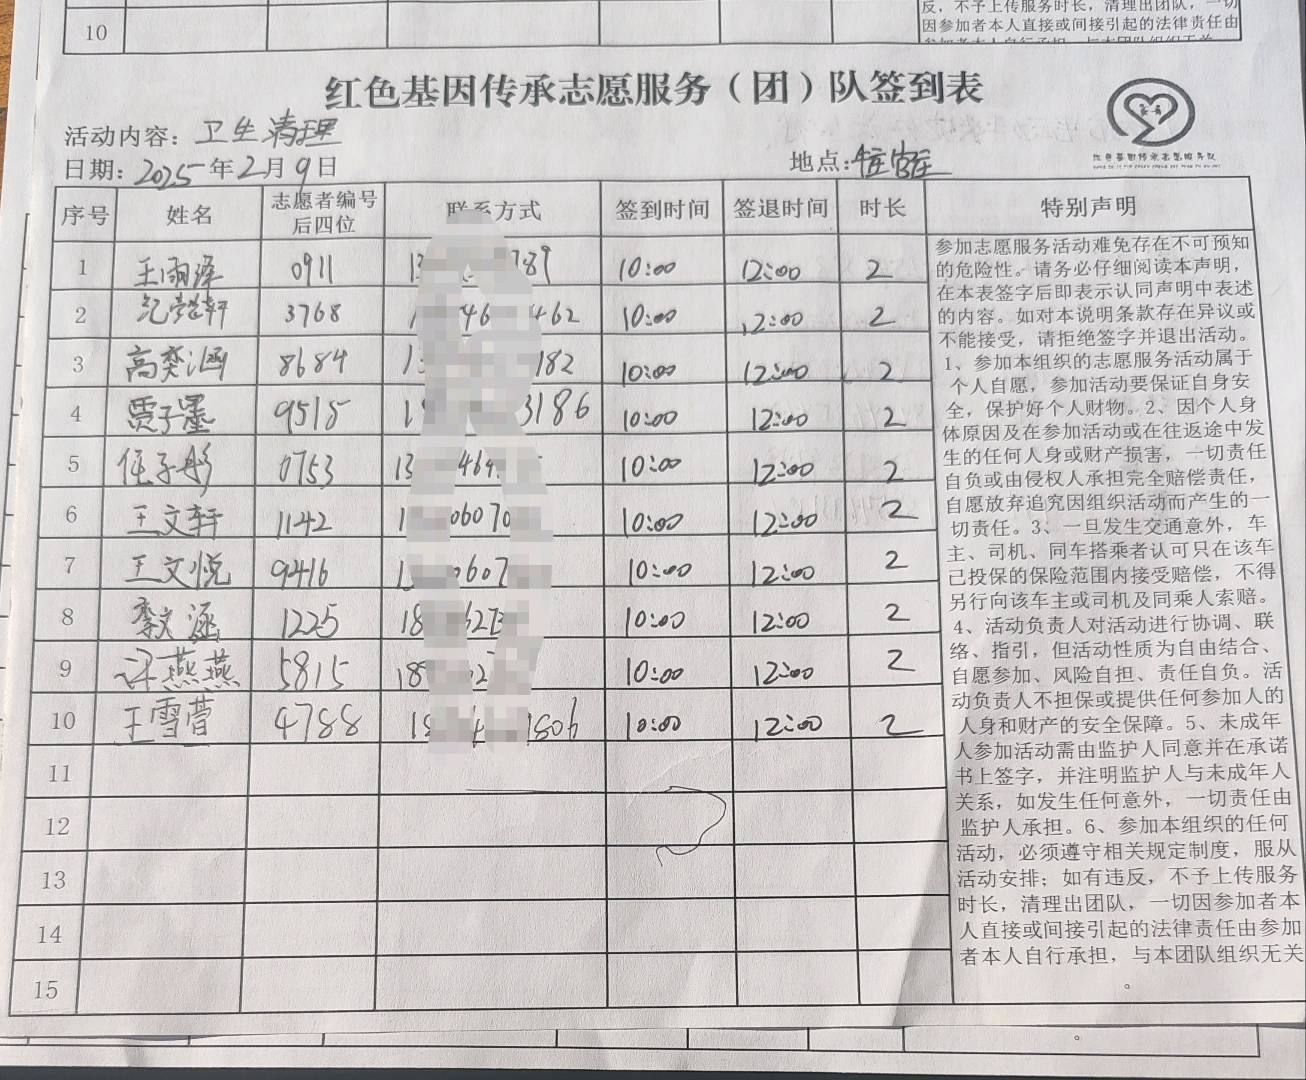 10
反，不予上传服务时长，清理出团队，一切
因参加者本人直接或间接引起的法律责任由
红色基因传承志愿服务（团）队签到表
活动内容：卫生清理
日期：2025年2月9日 地点：
红色基因传承志愿服务队
序号 姓名 志愿者编号后四位 联系方式 签到时间 签退时间 时长 特别声明
1 王雨泽 0911 13 789 10:00 12:00 2
2 轩 3768 1 46 462 10:00 12:00 2
3 高奕涵 8684 13 182 10:00 12:00 2
4 贾子墨 9515 1 3186 10:00 12:00 2
5 任子彤 0753 13 464 10:00 12:00 2
6 王文轩 1142 1 06070 10:00 12:00 2
7 王文悦 9416 1 0607 10:00 12:00 2
8 李文涵 1225 18 627 10:00 12:00 2
9 许燕燕 5815 18 2 10:00 12:00 2
10 王雪萱 4788 18 4 1806 10:00 12:00 2
11
12
13
14
15
参加志愿服务活动难免存在不可预知
的危险性。请务必仔细阅读本声明，
在本表签字后即表示认同声明中表述
的内容。如对本说明条款存在异议或
不能接受，请拒绝签字并退出活动。
1、参加本组织的志愿服务活动属于
个人自愿，参加活动要保证自身安
全，保护好个人财物。2、因个人身
体原因及在参加活动或在往返途中发
生的任何人身或财产损害，一切责任
自负或由侵权人承担完全赔偿责任，
自愿放弃追究因组织活动而产生的一
切责任。3、一旦发生交通意外，车
主、司机、同车搭乘者认可只在该车
已投保的保险范围内接受赔偿，不得
另行向该车主或司机及同乘人索赔。
4、活动负责人对活动进行协调、联
络、指引，但活动性质为自由结合、
自愿参加、风险自担、责任自负。活
动负责人不担保或提供任何参加人的
人身和财产的安全保障。5、未成年
人参加活动需由监护人同意并在承诺
书上签字，并注明监护人与未成年人
关系，如发生任何意外，一切责任由
监护人承担。6、参加本组织的任何
活动，必须遵守相关规定制度，服从
活动安排；如有违反，不予上传服务
时长，清理出团队，一切因参加者本
人直接或间接引起的法律责任由参加
者本人自行承担，与本团队组织无关
。